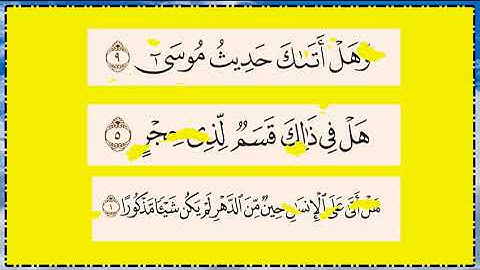 وَهَلْ أَتَىٰكَ حَدِيثُ مُوسَىٰٓ ٩
هَلْ فِى ذَٰلِكَ قَسَمٌ لِّذِى حِجْرٍ ٥
هَلْ أَتَىٰ عَلَى ٱلْإِنسَٰنِ حِينٌ مِّنَ ٱلدَّهْرِ لَمْ يَكُن شَيْـًٔا مَّذْكُورًا ١